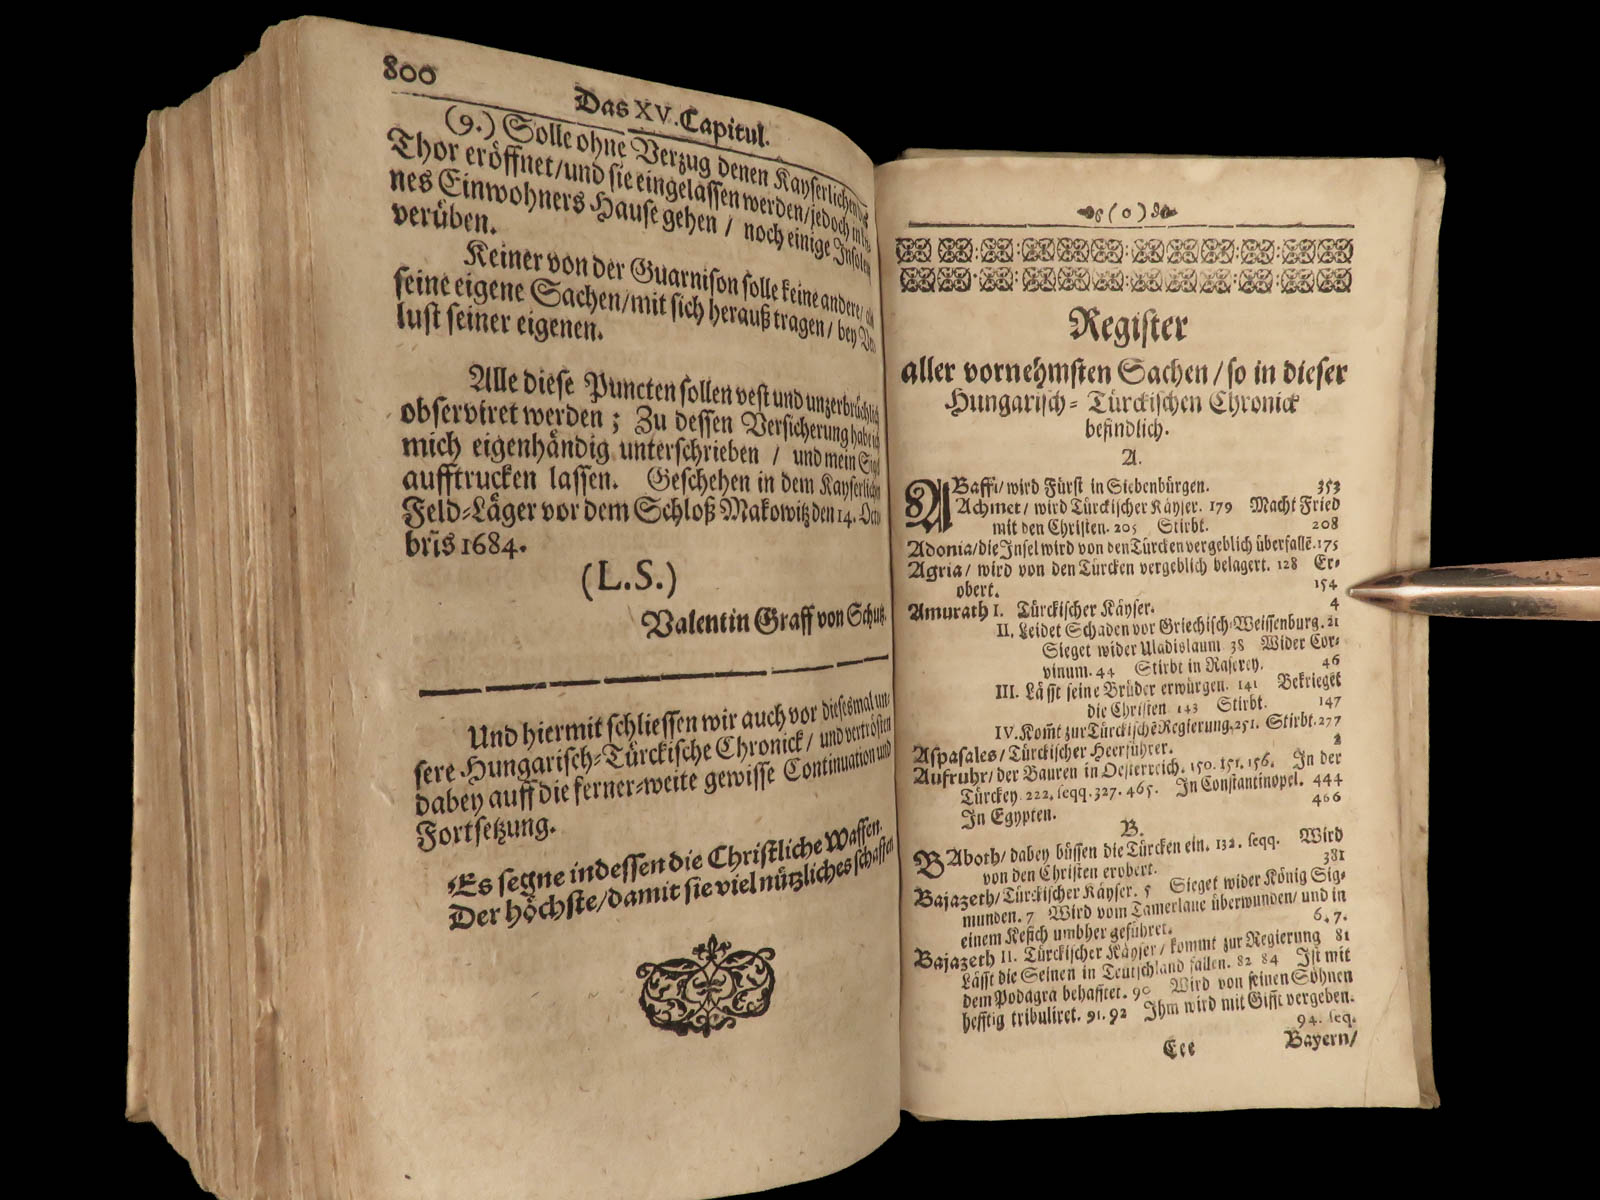 800
Das XV. Capitul.
(9.) Solle ohne Verzug denen Käyserlichen
Thor eröffnet/und sie eingelassen werden/jedoch
nes Einwohners Hause gehen / noch einige Insolen
verüben.
Keiner von der Guarnison solle keine andere/
seine eigene Sachen/mit sich herauß tragen/ bey Ver
lust seiner eigenen.
Alle diese Puncten sollen vest und unzerbrüchlich
observiret werden ; Zu dessen Versicherung habe ich
mich eigenhändig unterschrieben / und mein Sigel
aufftrucken lassen. Geschehen in dem Kayserlichen
Feld-Läger vor dem Schloß Makowitz den 14. Octo
bris 1684.
(L.S.)
Valentin Graff von Schultz.
Und hiermit schliessen wir auch vor diesesmal un-
sere Hungarisch-Türckische Chronick/ und vertrösten
dabey auff die ferner-weite gewisse Continuation und
Fortsetzung.
Es segne indessen die Christliche Waffen.
Der Höchste/damit sie viel nützliches schaffen
(0)
Register
aller vornehmsten Sachen / so in dieser
Hungarisch- Türckischen Chronick
befindlich.
A.
ABaffi/ wird Fürst in Siebenbürgen. 353
Achmet/ wird Türckischer Käyser. 179 Macht Fried
mit den Christen. 205 Stirbt. 208
Adonia/die Insel wird von den Türcken vergeblich überfallē.175
Agria/ wird von den Türcken vergeblich belagert. 128 Er-
obert. 154
Amurath I. Türckischer Käyser. 4
II. Leidet Schaden vor Griechisch-Weissenburg. 21
Sieget wider Uladislaum 38 Wider Cor-
vinum. 44 Stirbt in Raserey. 46
III. Lässt seine Brüder erwürgen. 141 Bekrieget
die Christen 143 Stirbt. 147
IV. Kom̄t zur Türckischē Regierung.251. Stirbt.277
Aspasales/ Türckischer Heerführer. 2
Aufruhr/ der Bauren in Oesterreich. 150. 151. 156. In der
Türckey. 222. seqq. 327. 465. In Constantinopel. 444
In Egypten. 466
B.
BAboth/ dabey büssen die Türcken ein. 132. seqq. Wird
von den Christen erobert. 381
Bajazeth/ Türckischer Käyser. 5 Sieget wider König Sig-
munden. 7 Wird vom Tamerlane überwunden/ und in
einem Kefich umbher geführet. 6. 7.
Bajazeth II. Türckischer Käyser / kommt zur Regierung 81
Lässt die Seinen in Teutschland fallen. 82 84 Ist mit
dem Podagra behafftet. 90 Wird von seinen Söhnen
hefftig tribuliret. 91. 92 Ihm wird mit Gifft vergeben.
94. seq.
Eee
Bayern/